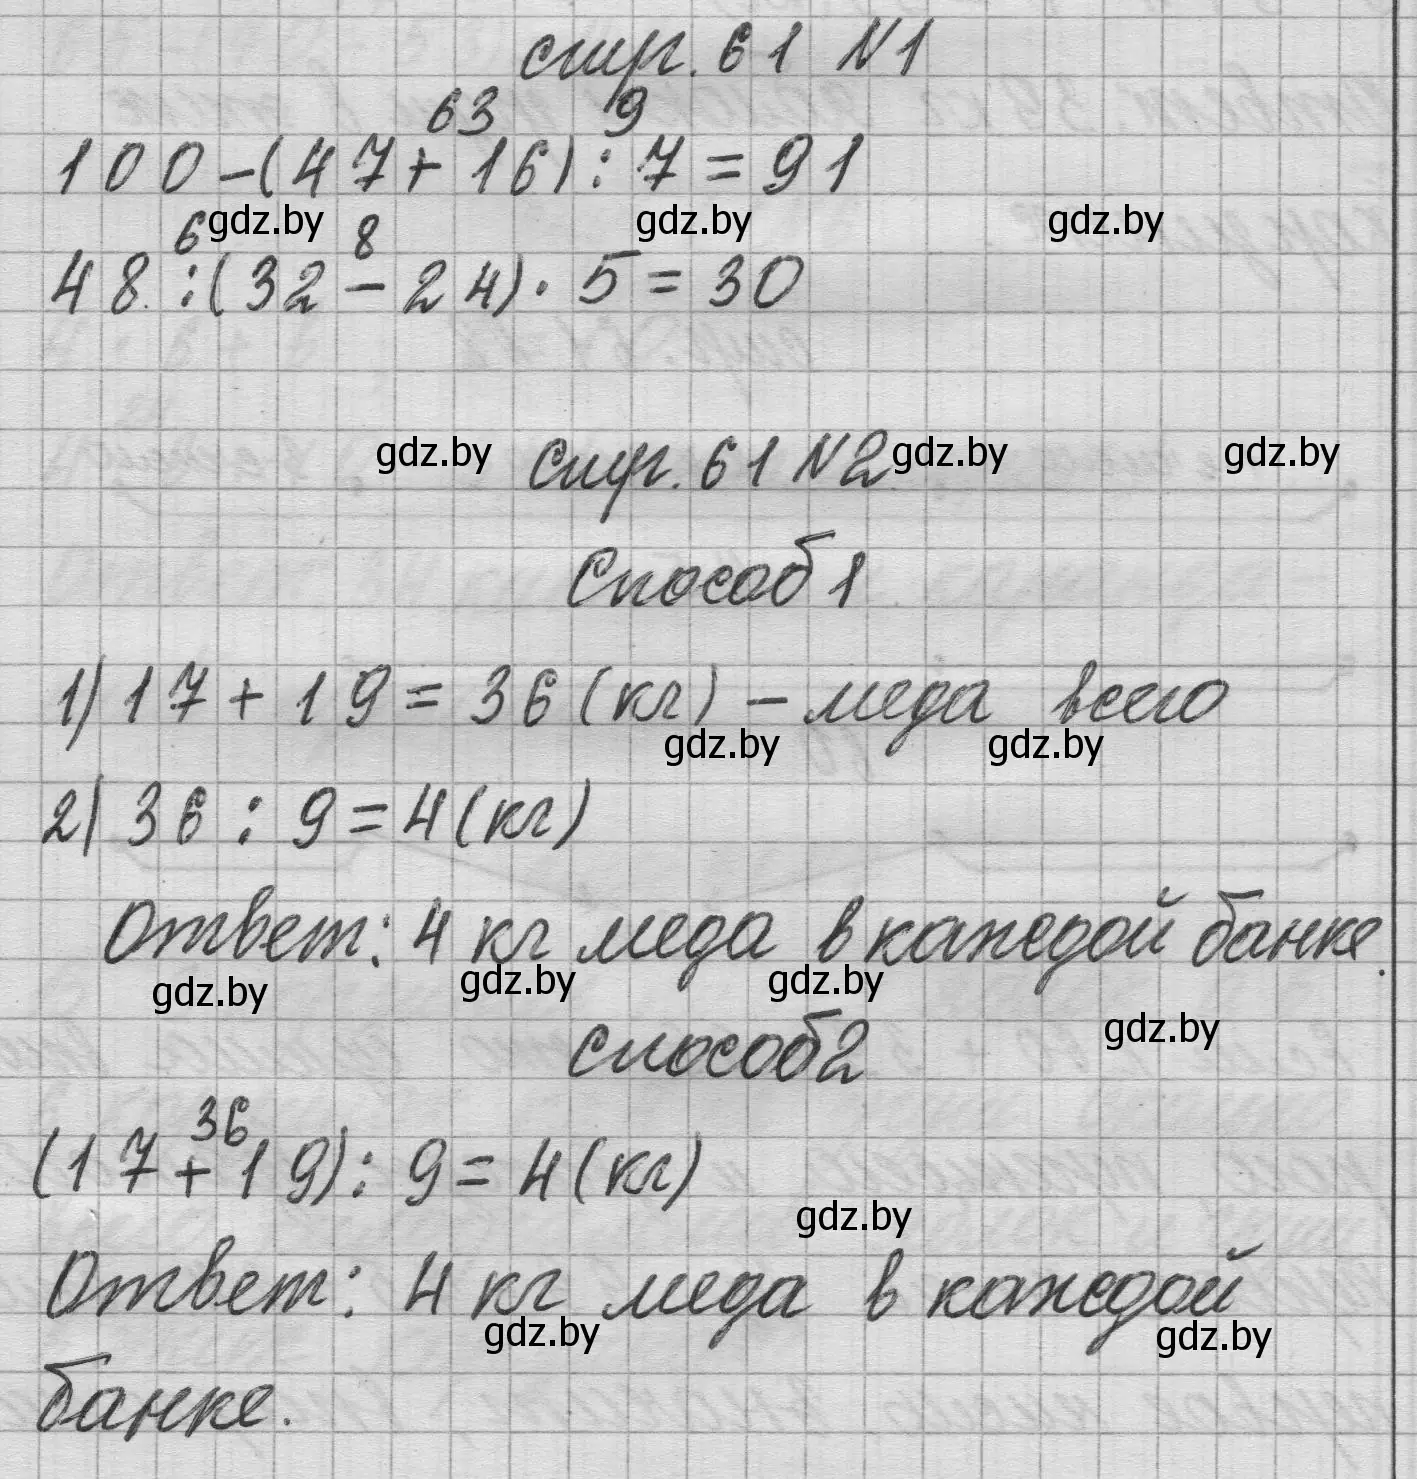 стр. 61 N1
63 9
100-(47+16):7=91
gdz.by gdz.by gdz.by
6 8
48:(32-24)·5=30
gdz.by стр. 61 N2 gdz.by gdz.by
Способ 1
1) 17+19=36(кг) - меда всего
gdz.by gdz.by
2) 36:9=4(кг)
Ответ: 4 кг меда в каждой банке.
gdz.by gdz.by gdz.by
gdz.by
способ 2
36
(17+19):9=4(кг)
gdz.by
Ответ: 4 кг меда в каждой
gdz.by gdz.by
банке.